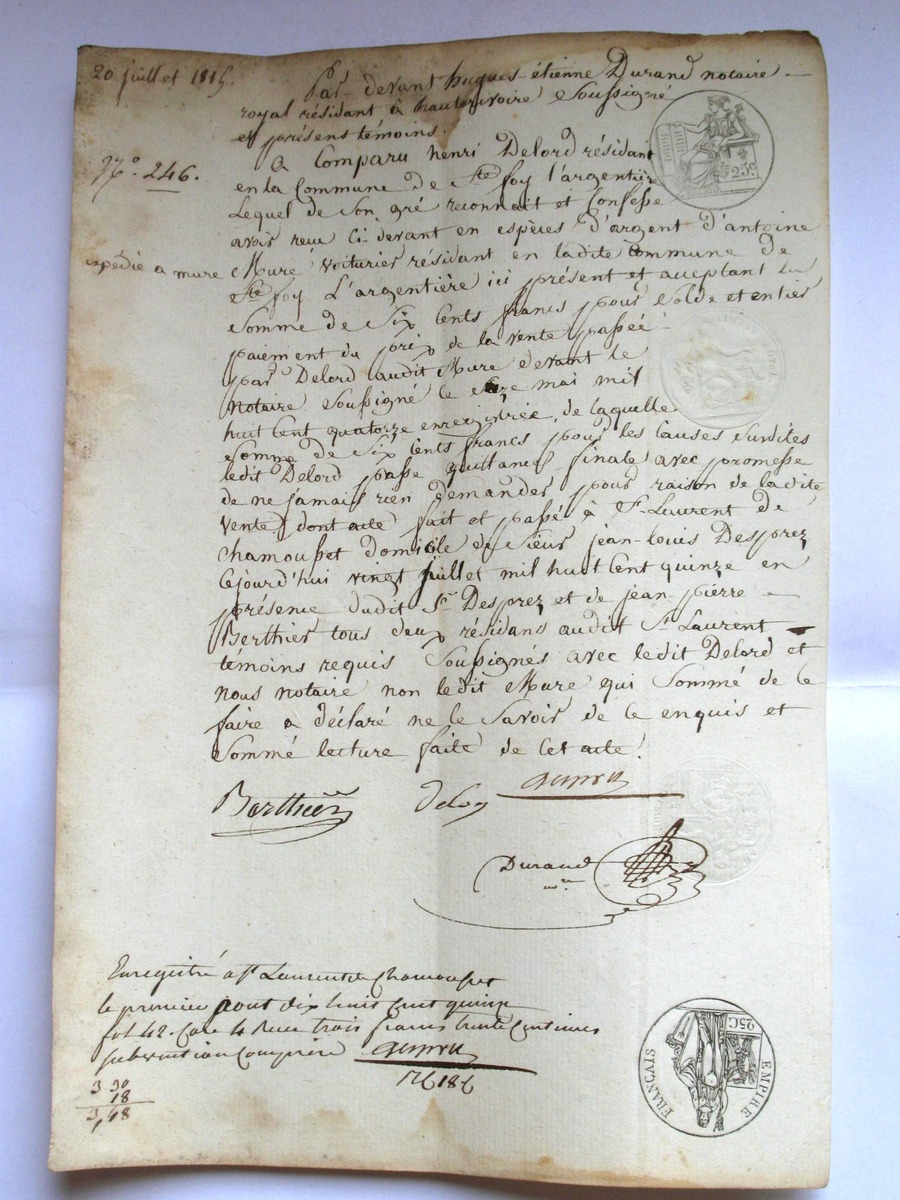 20 juillet 1815.
Par-devant hugues-étienne Durand notaire
royal résidant à hauterivoire soussigné
et présens témoins.
N.º 246.
A Comparu henri Delord résidant
en la Commune de Ste foy l'argentière
Lequel de son gré reconnait et Confesse
avoir reçu Ci-devant en espèces d'argent d'antoine
expédié a mure
Mure voiturier résidant en ladite Commune de
Ste foy L'argentière ici présent et acceptant la
somme de Six Cents francs pour solde et entier
paiement du prix de la vente passée
par Delord audit Mure devant le
Notaire soussigné le mai mil
huit Cent quatorze enregistrée, de laquelle
somme de Six Cents francs pour les Causes susdites
ledit Delord passe quittance finale avec promesse
de ne jamais rien demander pour raison de ladite
vente, dont acte fait et passé à St. Laurent de
Chamousset domicile de Sieur jean-louis Desprez
Cejourd'hui vingt juillet mil huit Cent quinze en
présence dudit Sr. Desprez et de jean-pierre
Berthier tous deux résidans audit St. Laurent
témoins requis soussignés avec ledit Delord et
Nous notaire non ledit Mure qui sommé de le
faire a déclaré ne le savoir de ce enquis et
sommé lecture faite de Cet acte.
Berthier
Durand
Enregistré a St Laurent de Chamousset
le premier aout dix huit cent quinze
fol 42. Case 4 Recu trois francs trente Centimes
subvention Comprise
3 30
18
3,48
25C
25C
EMPIRE FRANÇAIS